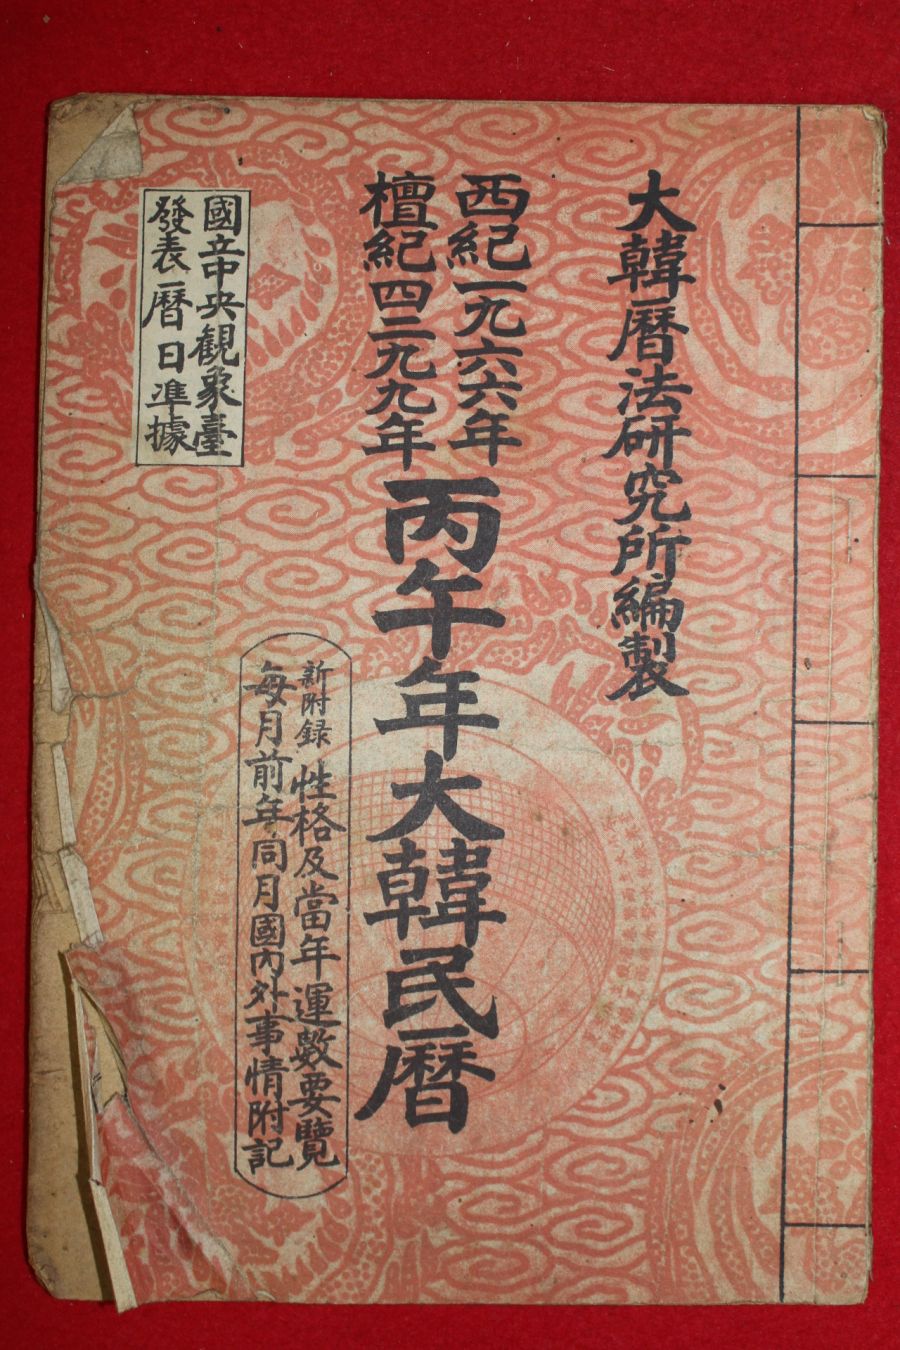 大韓曆法研究所編製
西紀一九六六年
檀紀四二九九年
丙午年大韓民曆
新附録 性格及當年運數要覽
每月前年同月國內外事情附記
國立中央観象臺
發表曆日準據